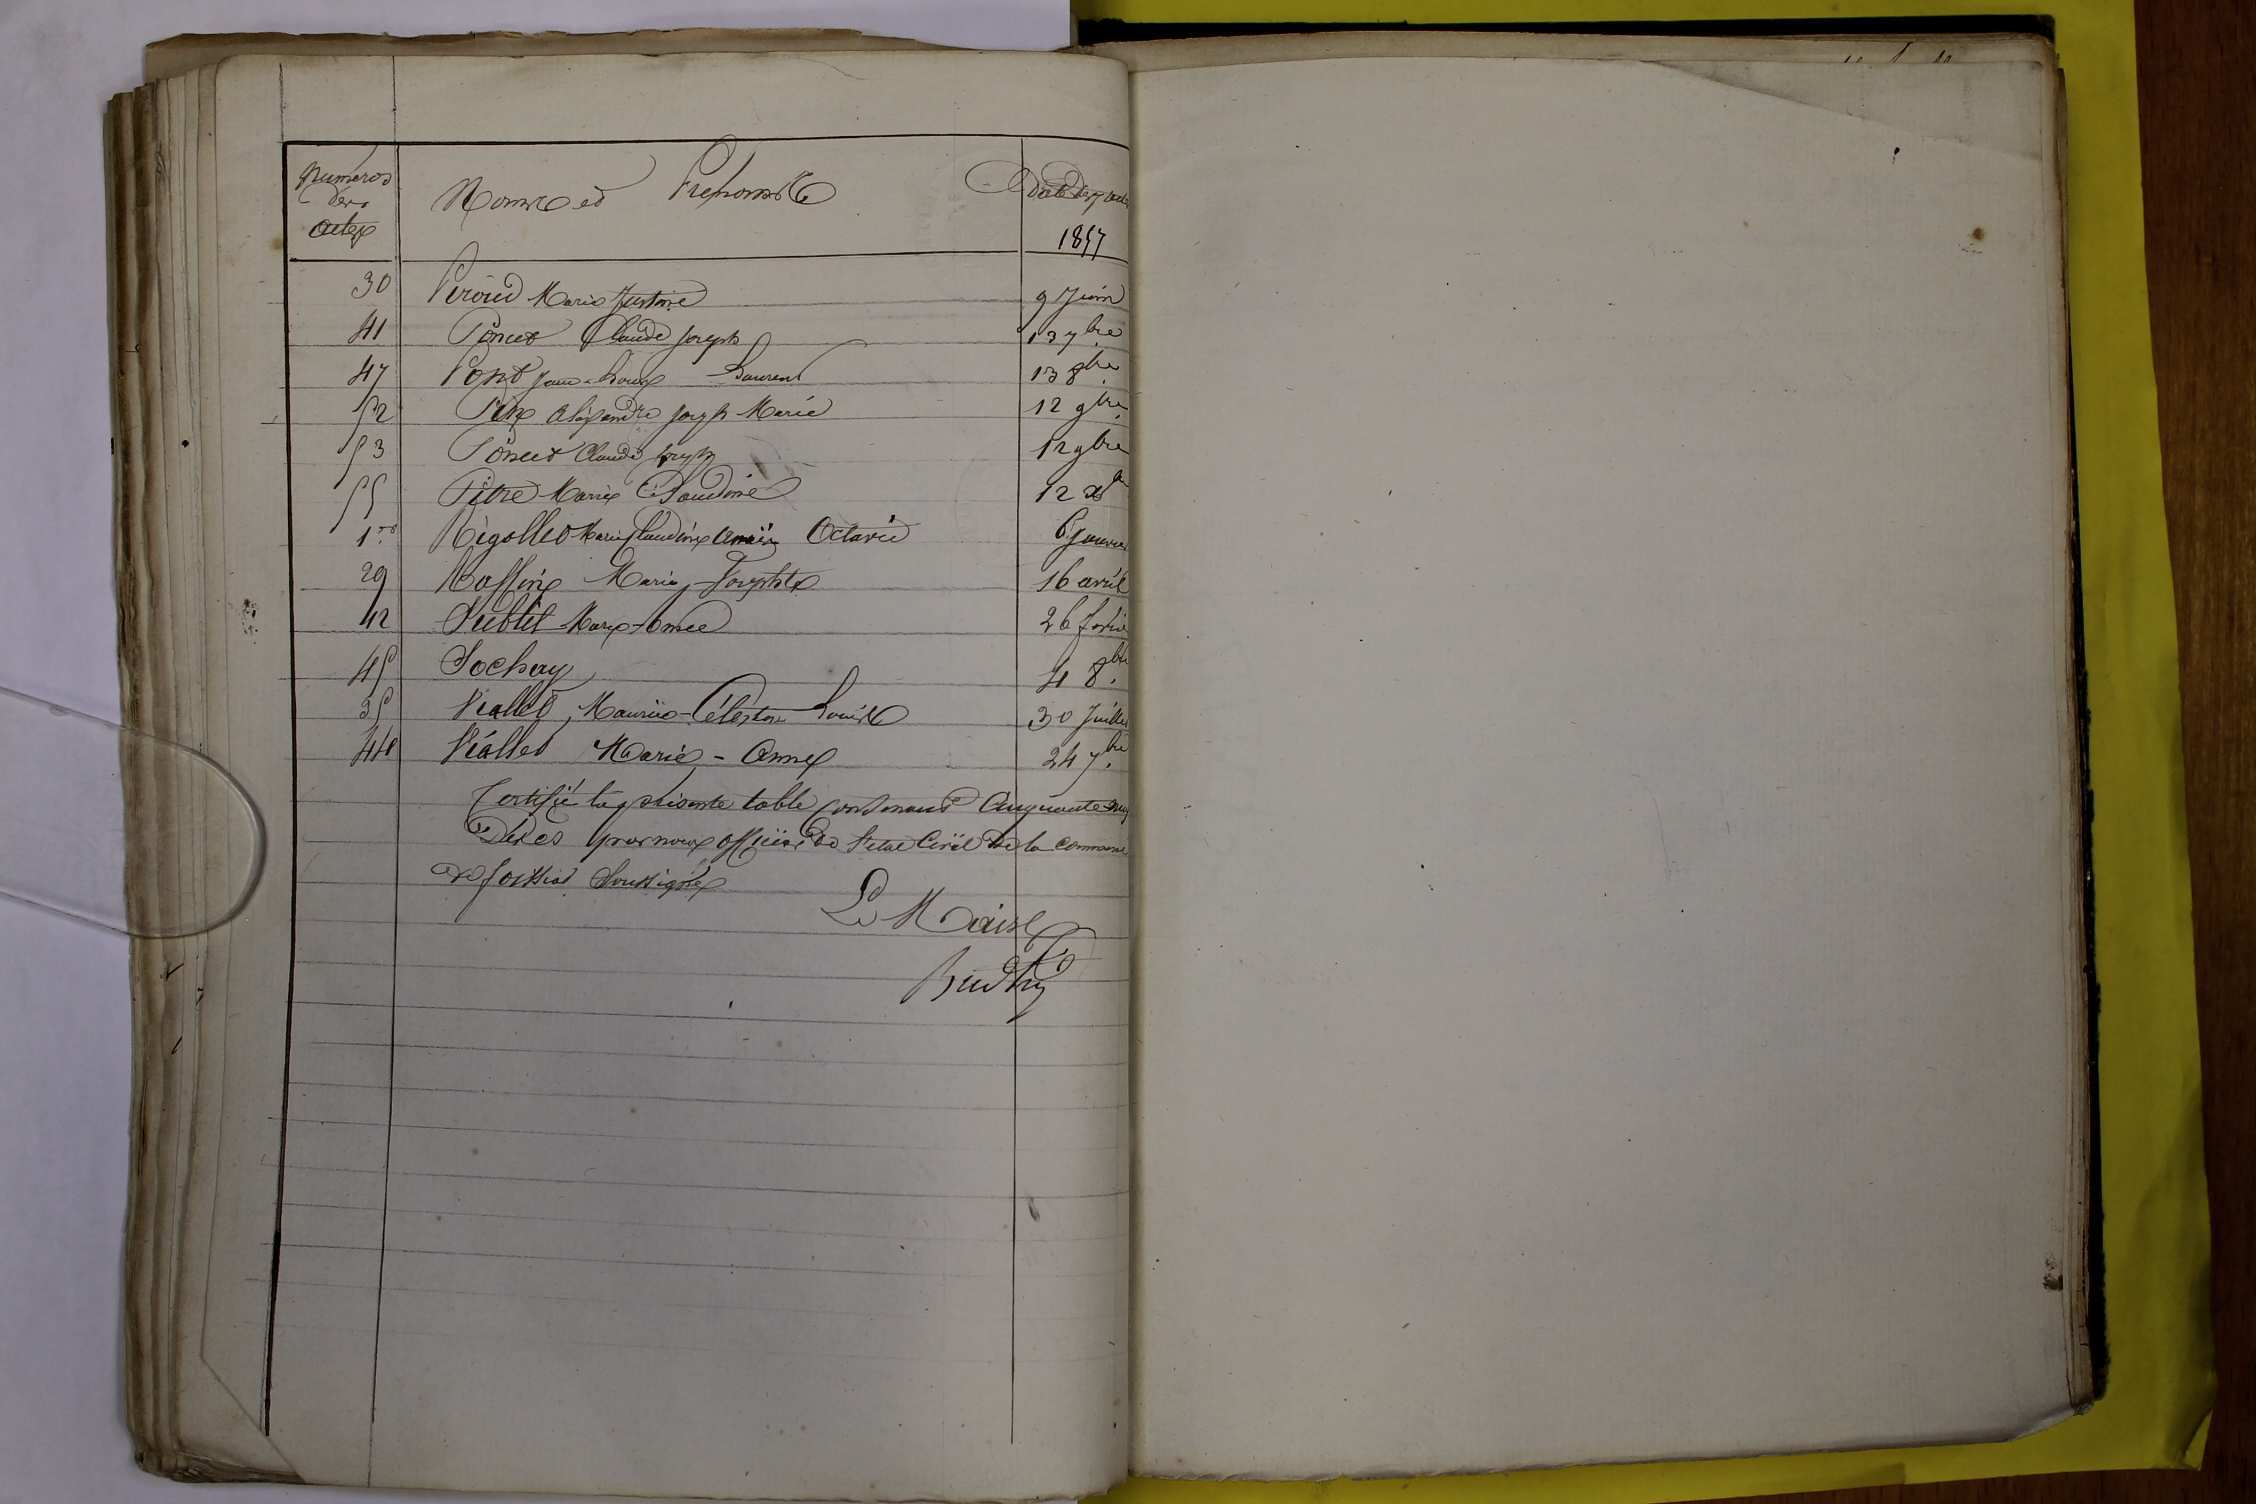 Numéros des actes Noms et Prénoms Date des actes 1857
30 Peroud Marie Justine 9 Juin
41 Poncet Claude Joseph 13 7bre
47 Pont Jean-Louis Laurent 13 8bre
52 Alexandre Joseph Marie 12 9bre
53 Poncet Claude Joseph 12 9bre
55 Pitre Marie Claudine 12 xbre
1er Rigollet Marie Claudine Octavie 6 Janvier
29 Roffine Marie Josephte 16 avril
12 Sublet Marie-Aimée 26 février
45 Sochay 4 8bre
35 Viallet, Maurice-Célestin Louis 30 Juillet
44 Viallet Marie-Anne 24 7bre
Certifié la présente table contenant Cinquante
Décés par nous officier de l'état Civil de la Commune
de Soussigné
Le Maire